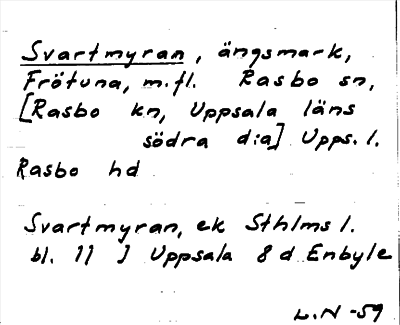 Svartmyran, ängsmark,
Frötuna, m.fl. Rasbo sn,
[Rasbo kn, Uppsala läns
södra d:a] Upps. l.
Rasbo hd
Svartmyran, ek Sthlms l.
bl. 11 J Uppsala 8 d Enbyle
L.N -59